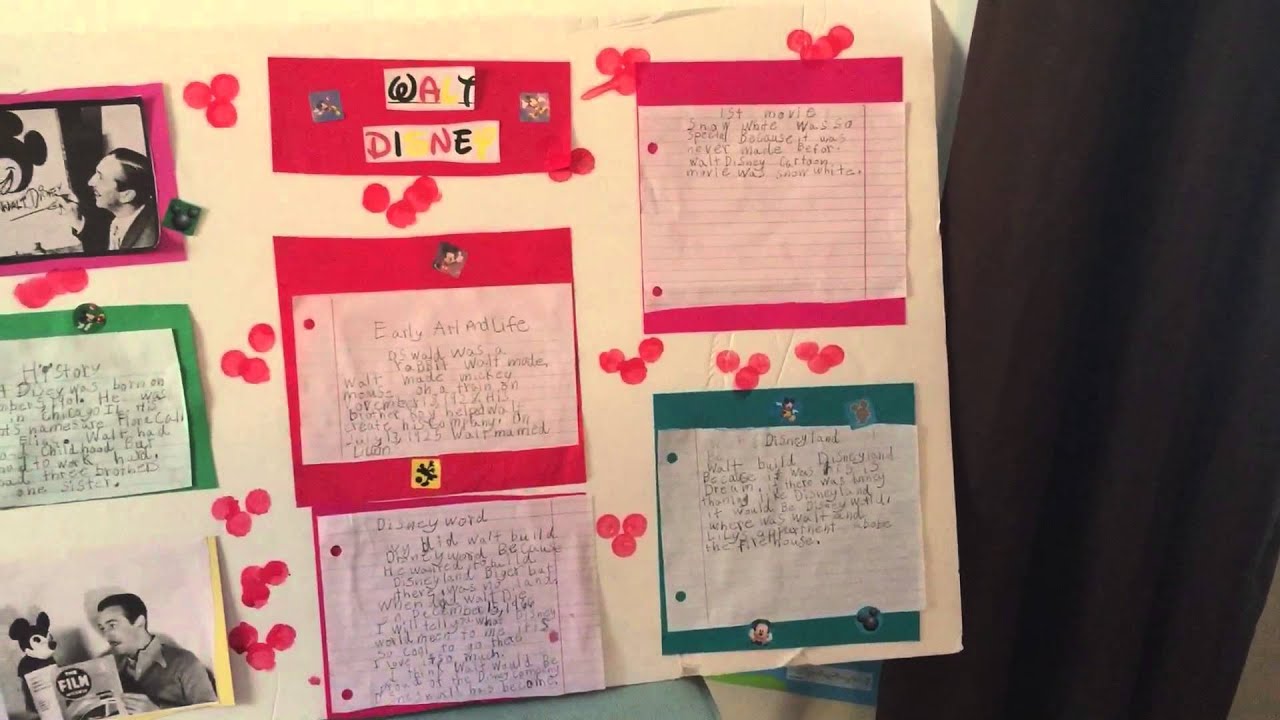 WALT
DISNEY
WALT
History
Disey was born on
1901. He was
in Chicago IL His
names are Flora Call
Walt had
Childhood
to work hard.
had three brothers
one sister.
THE
FILM
Early Art Ad Life
Oswald was a
rabbit Walt made.
Walt made mickey
mouse on a train on
November 13 1927 His
brother Roy helped Walt
create his company. On
July 13, 1925 Walt married
Disney word
did walt build
Disney word Because
He wanted to build
Disneyland Biger but
there was no land.
When did Walt Die
on December 15, 1966
I will tell you what Disney
world mean to me it is
so cool to go there
I love it so much.
I think Walt would Be
proud of the Disney company
has become.
1st movie
Snow white was so
special because it was
never made befor.
Walt Disney Cartoon
movie was snow white.
Disneyland
Walt build Disneyland
Because it was his
Dream. if there was
thaning like Disneyland
it would be Disney world.
where was walt and
Lily's appartment abobe
the firehouse.